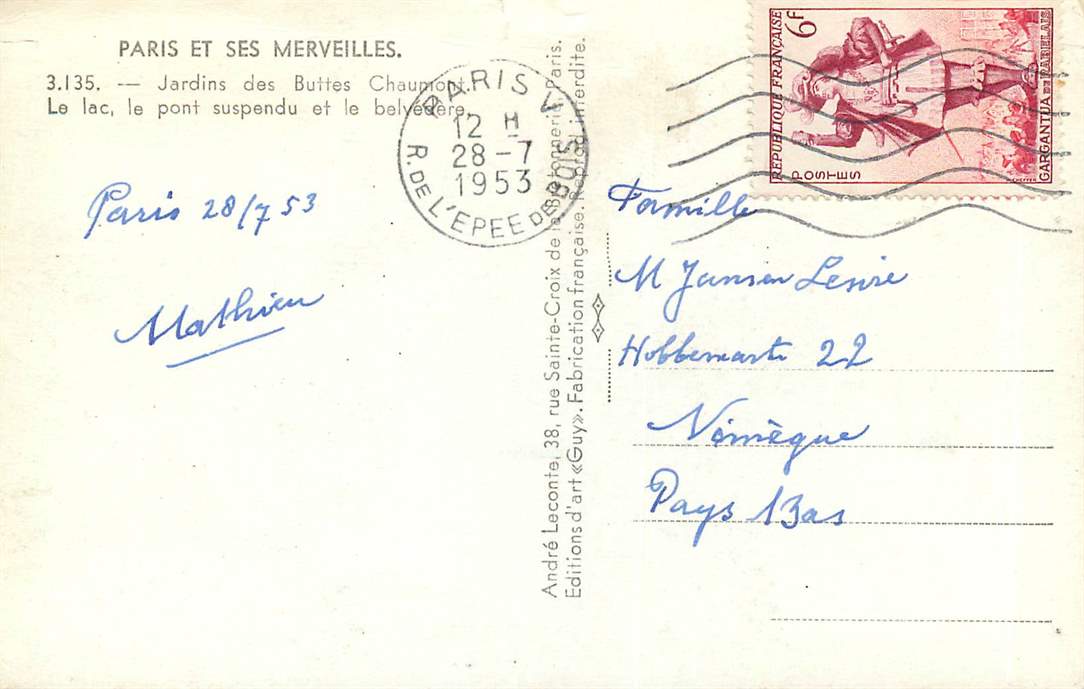 PARIS ET SES MERVEILLES.
3.135. — Jardins des Buttes Chaumont.
Le lac, le pont suspendu et le belvédère.
Paris 28/7 53
Mathieu
PARIS V
12 H
28-7
1953
R. DE L'EPEE DE BOIS
André Leconte, 38, rue Sainte-Croix de la Bretonnerie, Paris.
Editions d'art «Guy». Fabrication française. Reprod. interdite.
6F
REPUBLIQUE FRANÇAISE
POSTES
GARGANTUA DE RABELAIS
Famille
M Jansen
22
Nimègue
Pays Bas